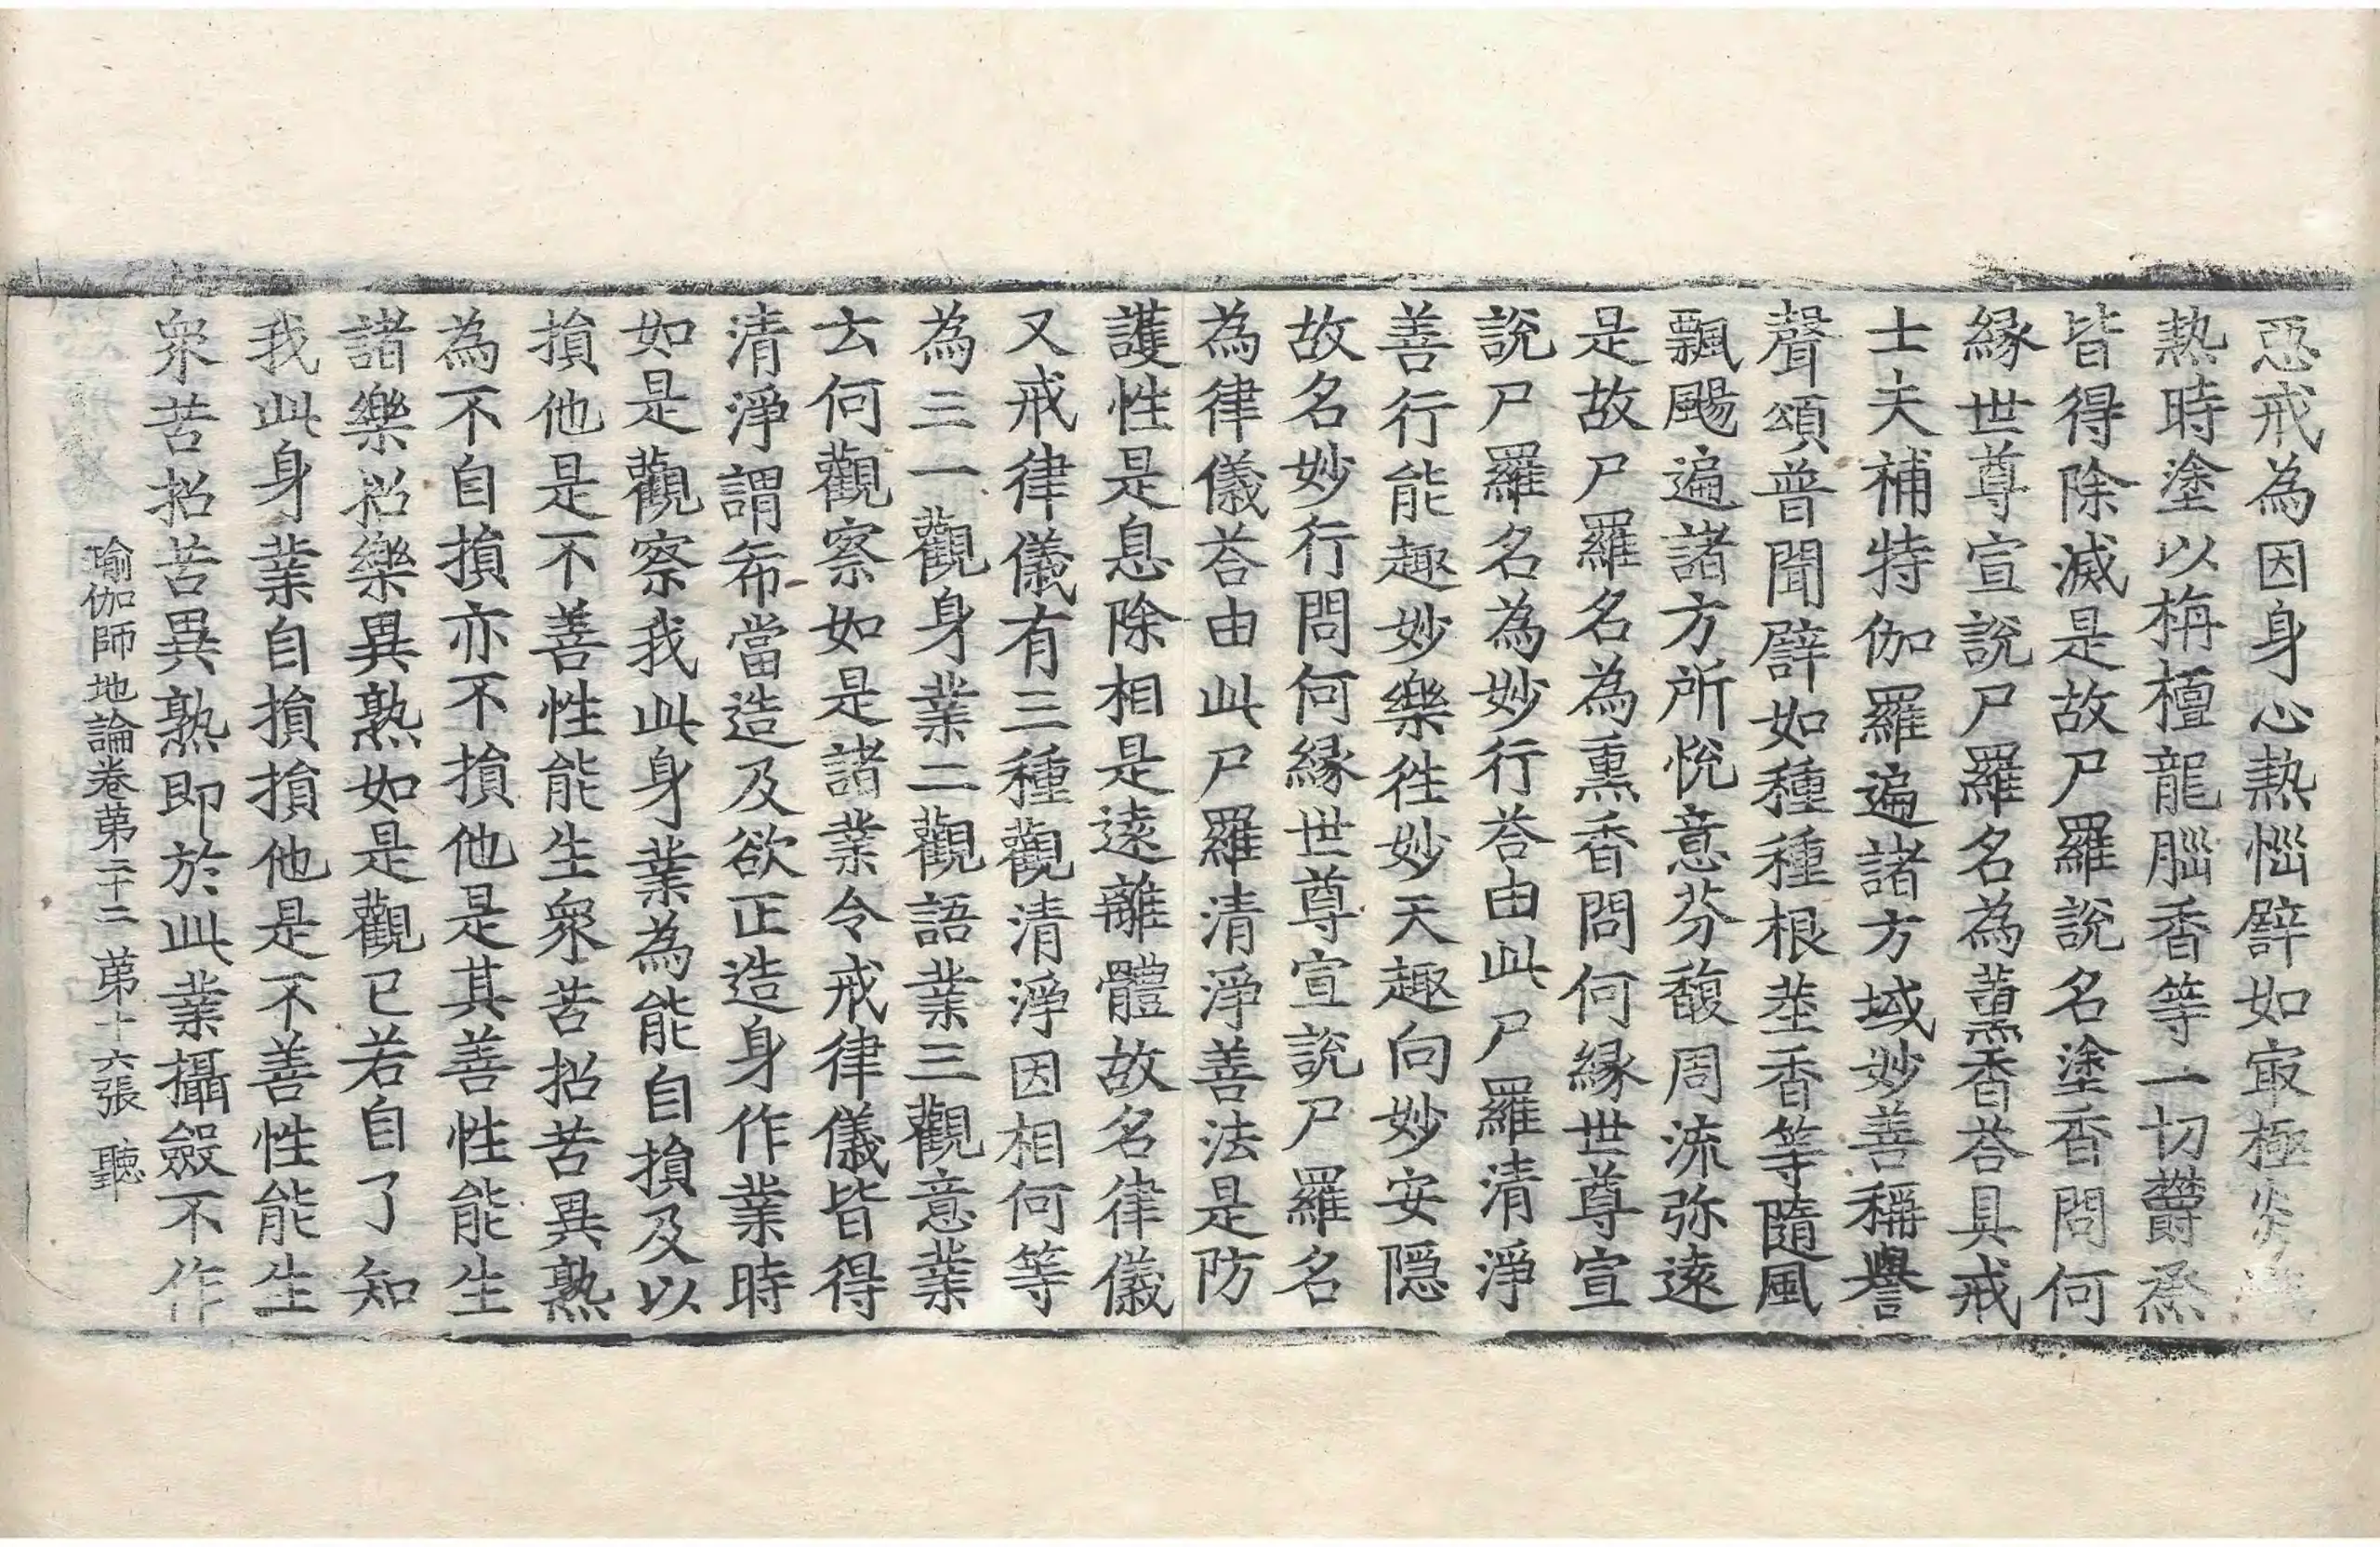 惡戒為因身心熱惱譬如㝡極炎
熱時塗以栴檀龍腦香等一切欝烝
皆得除滅是故尸羅說名塗香問何
緣世尊宣說尸羅名為薰香荅具戒
士夫補特伽羅遍諸方域妙善稱譽
聲頌普聞譬如種種根莖香等隨風
飄颺遍諸方所悅意芬馥周流弥遠
是故尸羅名為熏香問何緣世尊宣
說尸羅名為妙行荅由此尸羅清淨
善行能趣妙樂徃妙天趣向妙安隱
故名妙行問何緣世尊宣說尸羅名
為律儀荅由此尸羅清淨善法是防
護性是息除相是遠離體故名律儀
又戒律儀有三種觀清淨因相何等
為三一觀身業二觀語業三觀意業
云何觀察如是諸業令戒律儀皆得
清淨謂希當造及欲正造身作業時
如是觀察我此身業為能自損及以
損他是不善性能生衆苦招苦異熟
為不自損亦不損他是其善性能生
諸樂招樂異熟如是觀已若自了知
我此身業自損損他是不善性能生
衆苦招苦異熟即於此業攝斂不作
瑜伽師地論卷苐二十二 苐十六張 聽